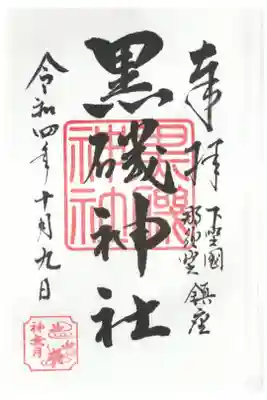 奉拝
下野國
那須野 鎮座
黒磯神社
黒磯
神社
令和四年十月九日
神無月